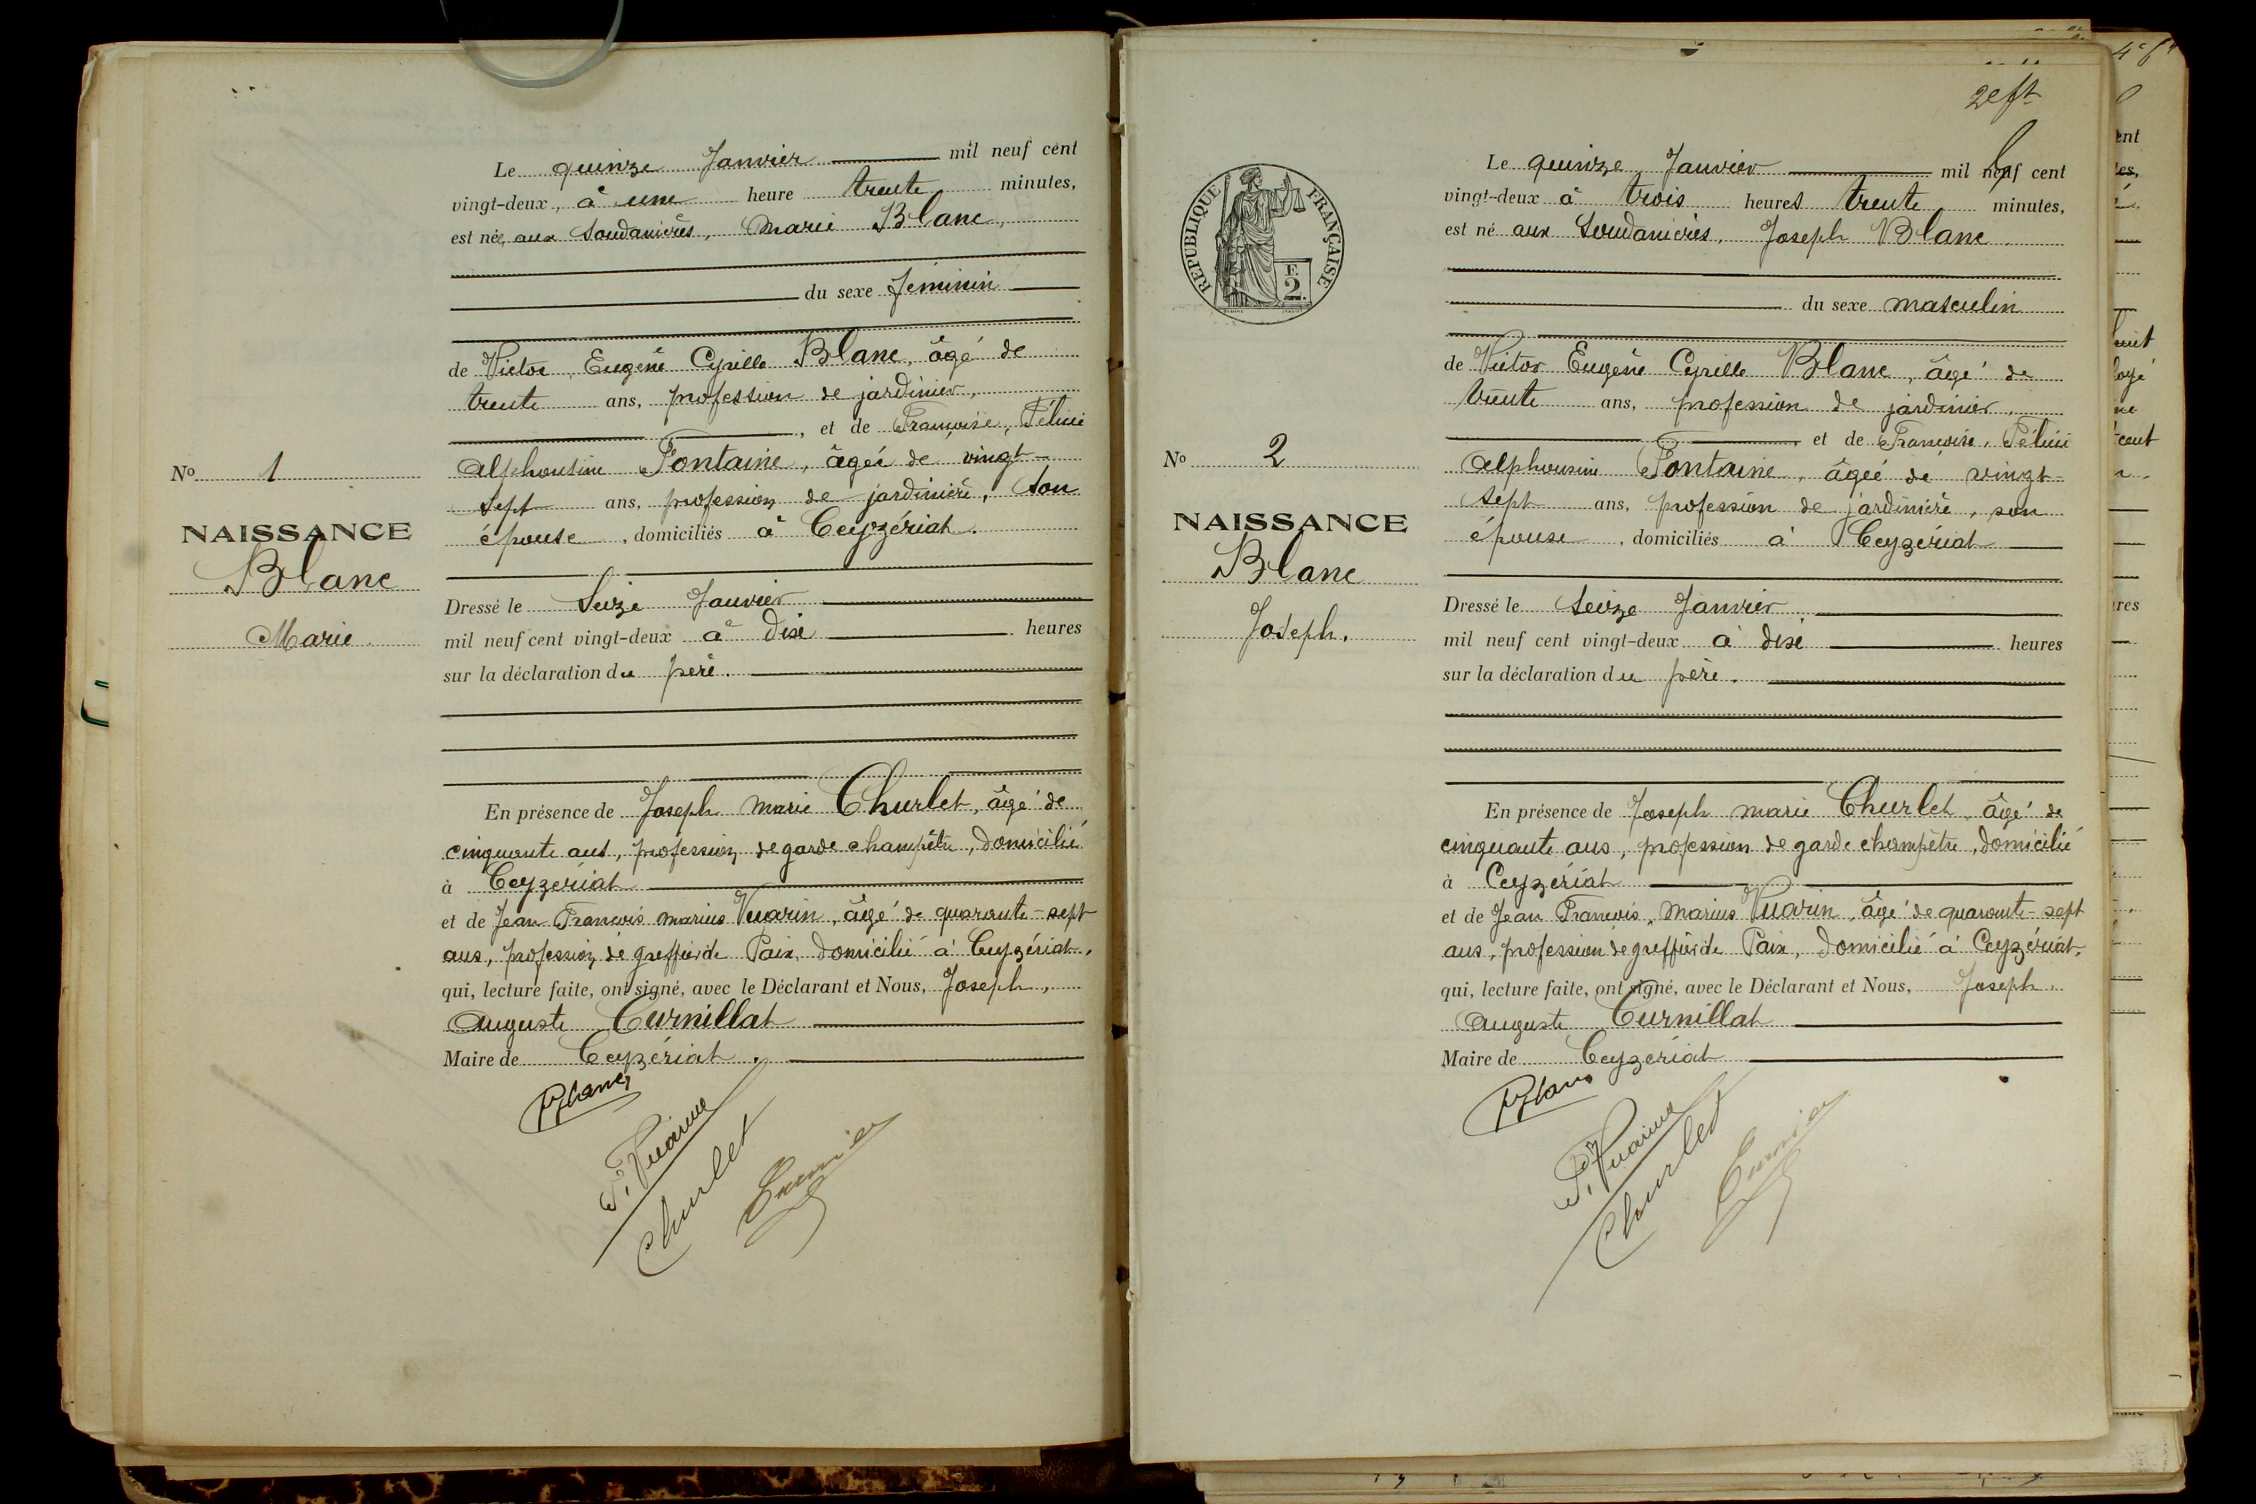 Le quinze Janvier mil neuf cent
vingt-deux, à une heure trente minutes,
est née, aux Soudanières, Marie Blanc,
du sexe féminin
de Victor, Eugène Cyrille Blanc, âgé de
trente ans, profession de jardinier,
, et de Françoise, Félicie
Alphonsine Fontaine, âgée de vingt-
sept ans, profession de jardinière, son
épouse, domiciliés à Ceyzériat.
No 1
NAISSANCE
Blanc
Marie
Dressé le Seize Janvier
mil neuf cent vingt-deux à dix heures
sur la déclaration du père.
En présence de Joseph Marie Churlet, âgé de
cinquante ans, profession de garde champêtre, domicilié
à Ceyzériat
et de Jean François Marius Vuarin, âgé de quarante-sept
ans, profession de greffier de Paix, domicilié à Ceyzériat,
qui, lecture faite, ont signé, avec le Déclarant et Nous, Joseph,
Auguste Curnillat
Maire de Ceyzériat.
Blanc
Vuarin
Churlet
2e ft
RÉPUBLIQUE FRANÇAISE
F.
2
Le quinze Janvier mil neuf cent
vingt-deux à trois heures trente minutes,
est né aux Soudanières, Joseph Blanc
du sexe masculin
de Victor Eugène Cyrille Blanc, âgé de
trente ans, profession de jardinier,
et de Françoise, Félicie
Alphonsine Fontaine, âgée de vingt-
sept ans, profession de jardinière, son
épouse, domiciliés à Ceyzériat
No 2
NAISSANCE
Blanc
Joseph.
Dressé le seize Janvier,
mil neuf cent vingt-deux à dix heures
sur la déclaration du père.
En présence de Joseph Marie Churlet, âgé de
cinquante ans, profession de garde champêtre, domicilié
à Ceyzériat
et de Jean François, Marius Vuarin, âgé de quarante-sept
ans, profession de greffier de Paix, domicilié à Ceyzériat,
qui, lecture faite, ont signé, avec le Déclarant et Nous, Joseph
Auguste Curnillat
Maire de Ceyzériat
Blanc
Vuarin
Churlet